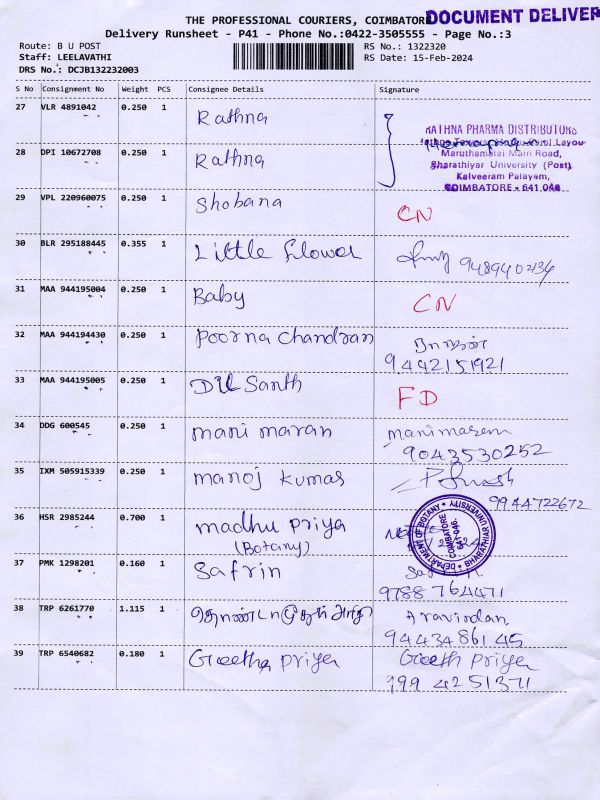 THE PROFESSIONAL COURIERS, COIMBATORE
DOCUMENT DELIVER
Delivery Runsheet - P41 - Phone No.:0422-3505555 - Page No.:3
Route: B U POST
RS No.: 1322320
Staff: LEELAVATHI
RS Date: 15-Feb-2024
DRS No.: DCJB132232003
S No Consignment No Weight PCS Consignee Details Signature
27 VLR 4891042 0.250 1 Rathna
RATHNA PHARMA DISTRIBUTORS
Maruthamalai Main Road,
28 DPI 10672708 0.250 1 Rathna
Bharathiyar University (Post)
Kalveeram Palayam,
COIMBATORE - 641 046
29 VPL 220960075 0.250 1 Shobana CN
30 BLR 295188445 0.355 1 Little flower 9489402134
31 MAA 944195004 0.250 1 Baby CN
32 MAA 944194430 0.250 1 Poorna Chandran
9442151921
33 MAA 944195005 0.250 1 Santh FD
34 DDG 600545 0.250 1 mani maran manimaran
9043530252
35 IXM 505915339 0.250 1 manoj kumar
9944722672
36 HSR 2985244 0.700 1 madhu priya
(Botany)
DEPARTMENT OF BOTANY BHARATHIAR UNIVERSITY
COIMBATORE
641-046.
37 PMK 1298201 0.160 1 Safrin
9788764471
38 TRP 6261770 1.115 1 Aravindan
9443486145
39 TRP 6540682 0.180 1 Geetha priya Geeth Priya
199 4251371